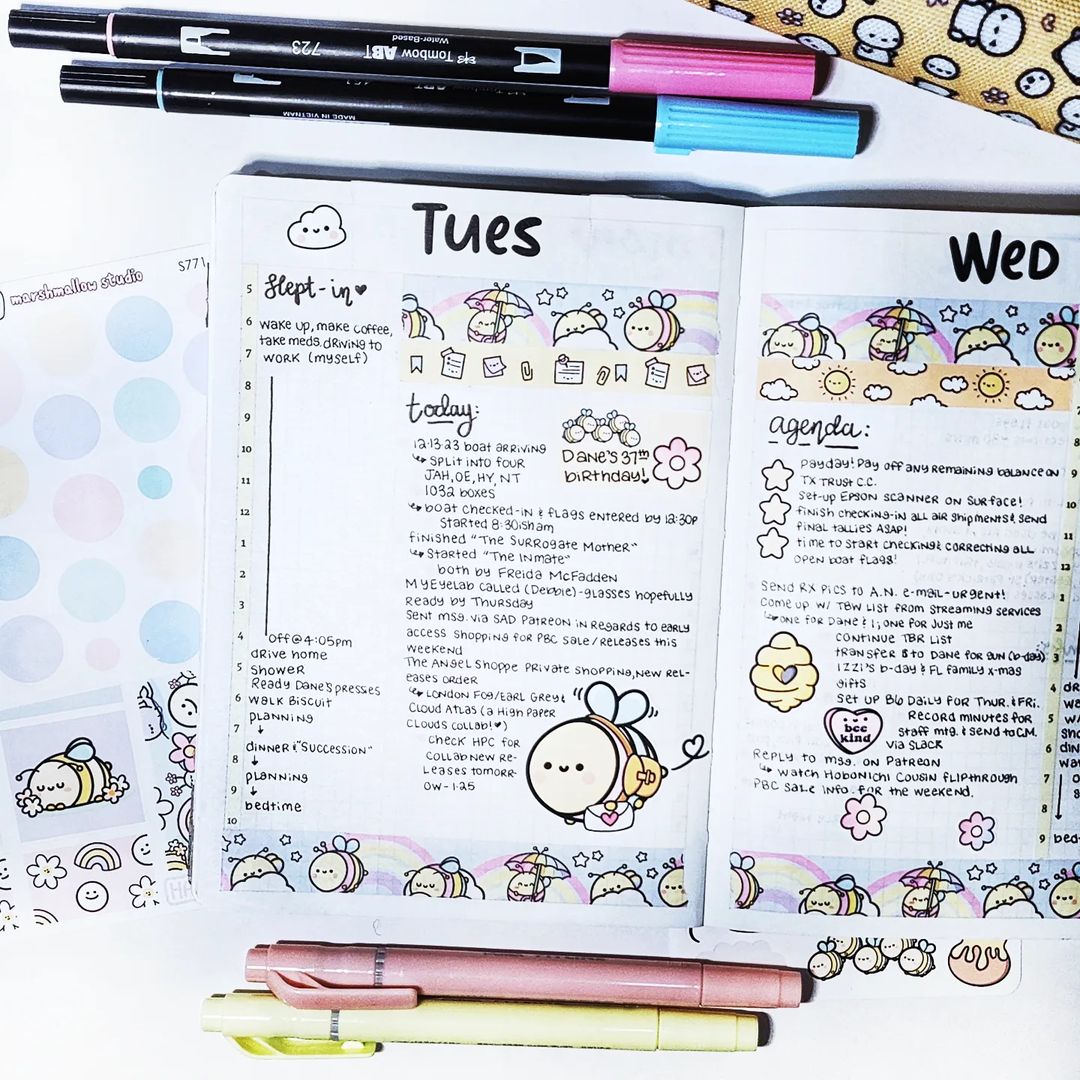 Water-Based
Tombow ABT
723
MADE IN VIETNAM
S771
marshmallow studio
Tues
5
Slept-in
6
wake up, make coffee,
take meds, driving to
7
work (myself)
8
9
10
11
1
2
3
4
off @ 4:05pm
drive home
5
shower
Ready Dane's presses
6
walk Biscuit
planning
7
dinner & "Succession"
8
planning
9
bedtime
10
today:
12·13·23 boat arriving
split into four
JAH, OE, HY, NT
1032 boxes
boat checked-in & flags entered by 12:30p
Started 8:30isham
finished "The Surrogate Mother"
Started "The Inmate"
both by Freida McFadden
MyEyelab called (Debbie)-glasses hopefully
Ready by Thursday
Sent msg. via SAD Patreon in regards to early
access shopping for PBC sale/releases this
weekend
The Angel Shoppe private shopping, new rel-
eases order
London Fog/Earl Grey &
Cloud Atlas (a High Paper
Clouds collab!♥)
Check HPC for
collab new Re-
leases tomorr-
ow - 1:25
Dane's 37th
birthday!
Wed
agenda:
Payday! Pay off any remaining balance on
TX Trust C.C.
set-up Epson scanner on Surface!
finish checking-in all air shipments & send
final tallies ASAP!
time to start checking & correcting all
open boat flags!
Send RX pics to A.N. e-mail-urgent!
Come up w/ TBW list from streaming services
one for Dane & I; one for just me
continue TBR list
transfer $ to Dane for Sun (b-day)
Izzi's b-day & FL family x-mas
gifts
Set up B6 Daily for Thur. & Fri.
bee
kind
Record minutes for
staff mtg. & send to C.M.
via Slack
Reply to msg. on Patreon
watch Hobonichi Cousin flipthrough
PBC sale info. for the weekend.
8
9
10
11
12
1
2
3
4
5
6
7
8
9
bed